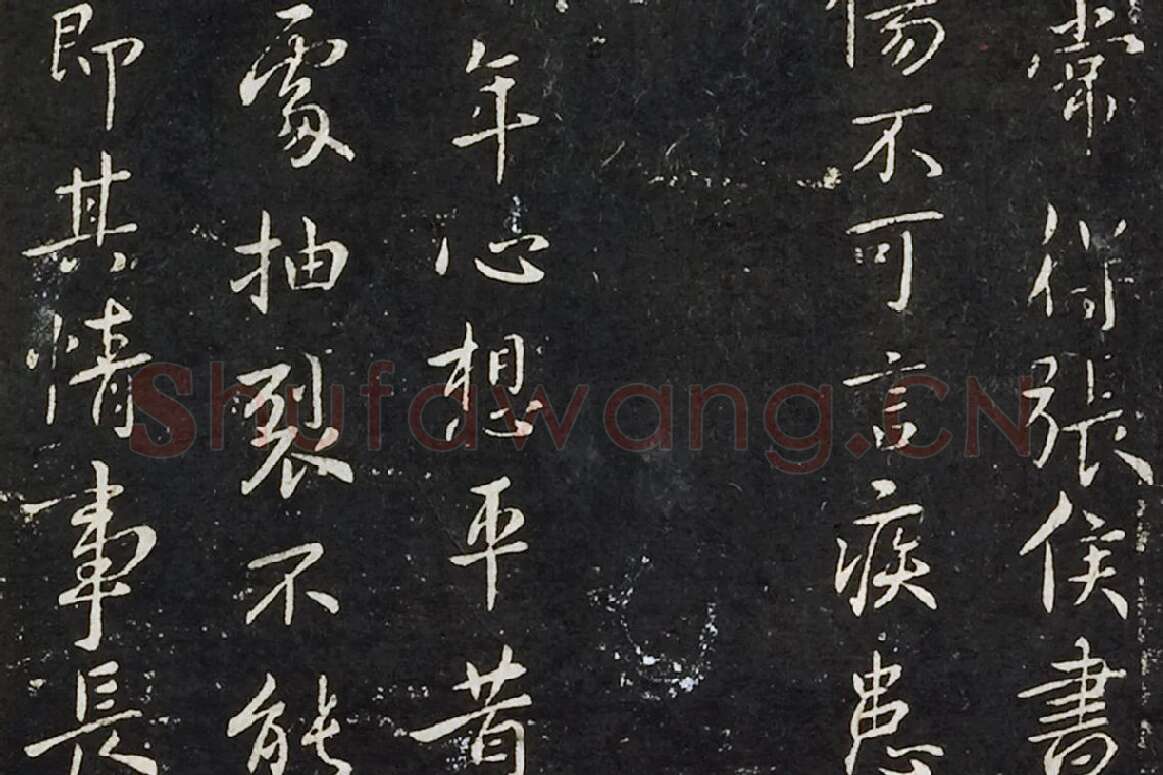 常得張侯書
傷不可言疾患
年心想平昔
處抽裂不能
即其情事長
Shufawang.CN